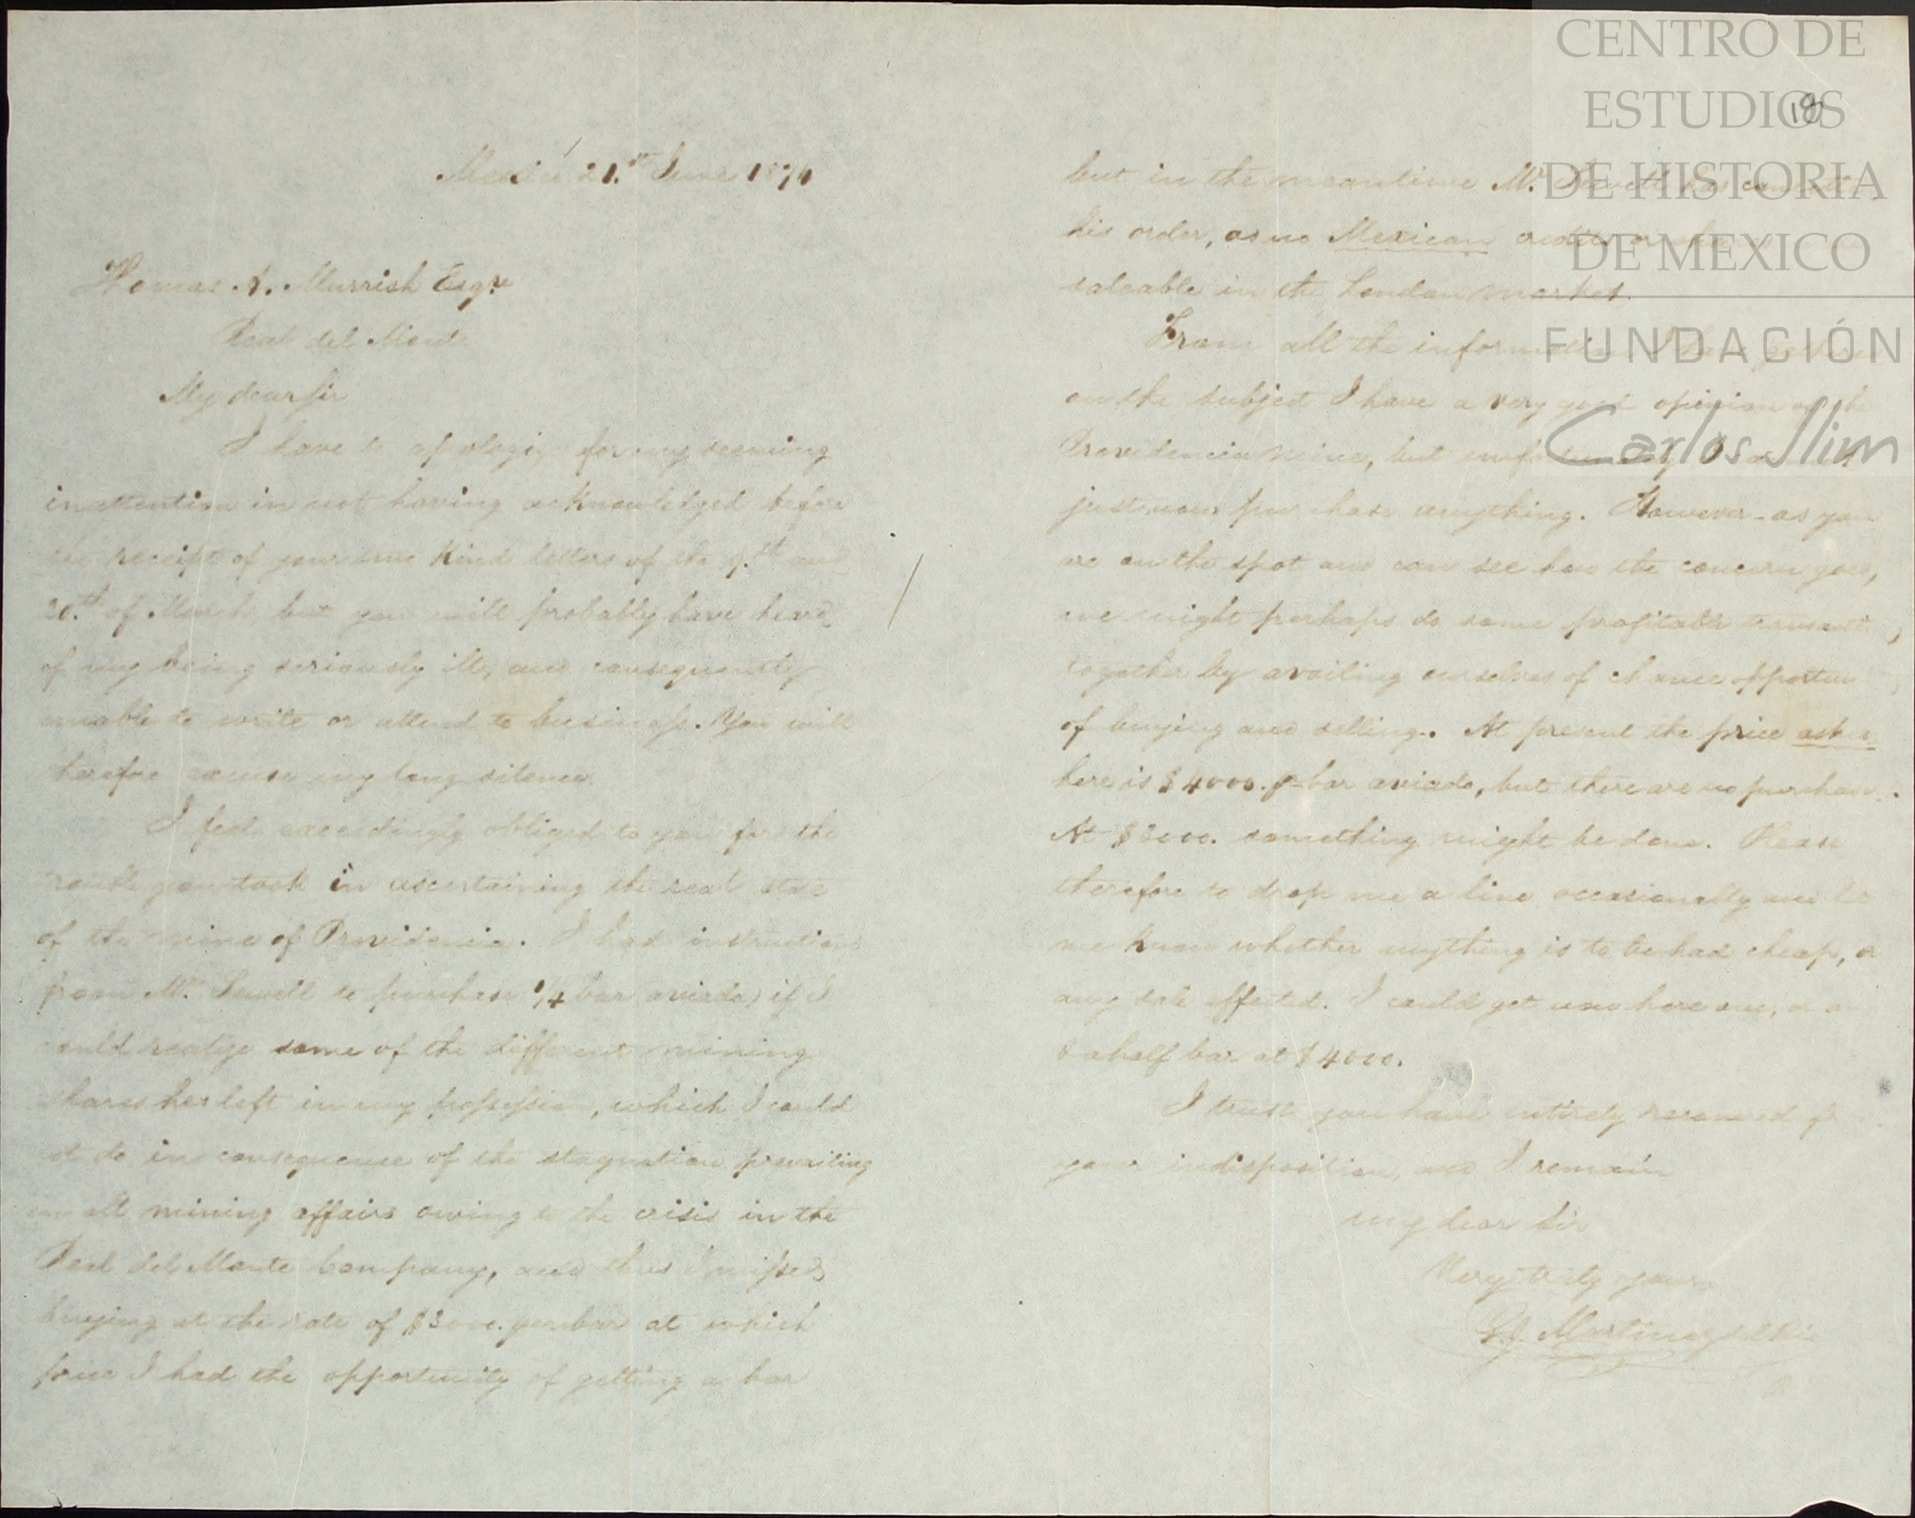 21.st June 1874
Thomas A. Murrish Esqre
Real del Monte
My dear Sir
I have to apologize for my seeming
inattention in not having acknowledged before
the receipt of your two kind letters of the 9.th and
20.th of March, but you will probably have heard
of my being seriously ill, and consequently
unable to write or attend to business. You will
therefore excuse my long silence.
I feel exceedingly obliged to you for the
trouble you took in ascertaining the real state
of the mine of Providencia. I had instructions
from Mr. Sewell to purchase 1/4 bar aviada, if I
could realize some of the different mining
shares he left in my possession, which I could
not do in consequence of the stagnation prevailing
in all mining affairs owing to the crisis in the
Real del Monte Company, and thus I missed
buying at the rate of $3000. per bar at which
price I had the opportunity of getting a bar
18
but in the meantime Mr. Sewell has
his order, as no Mexican credits or
saleable in the London market.
From all the information I have
on the subject I have a very good opinion of the
Providencia mine, but unfortunately I cannot
just now purchase anything. However as you
are on the spot and can see how the concern goes,
we might perhaps do some profitable
together by availing ourselves of chance
of buying and selling. At present the price asked
here is $4000. p. bar aviada, but there are no
At $3000. something might be done. Please
therefore to drop me a line occasionally and let
me know whether anything is to be had cheap, or
any sale effected. I could get now here one, or
a half bar at $4000.
I trust you have entirely recovered from
your indisposition, and I remain
my dear Sir
Very truly yours
CENTRO DE
ESTUDIOS
DE HISTORIA
DE MEXICO
FUNDACIÓN
Carlos Slim